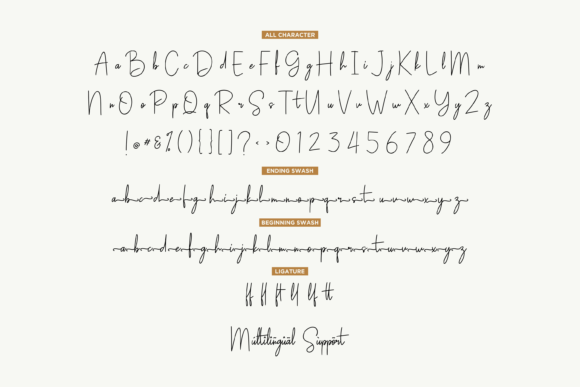 ALL CHARACTER
A a B b C c D d E e F f G g H h I i J j K k L l M m
N n O o P p Q q R r S s T t U u V v W w X x Y y Z z
! @ # & % ( ) { } [ ] ? < > 0 1 2 3 4 5 6 7 8 9
ENDING SWASH
a b c d e f g h i j k l m n o p q r s t u v w x y z
BEGINNING SWASH
a b c d e f g h i j k l m n o p q r s t u v w x y z
LIGATURE
ff fl ft lf tt